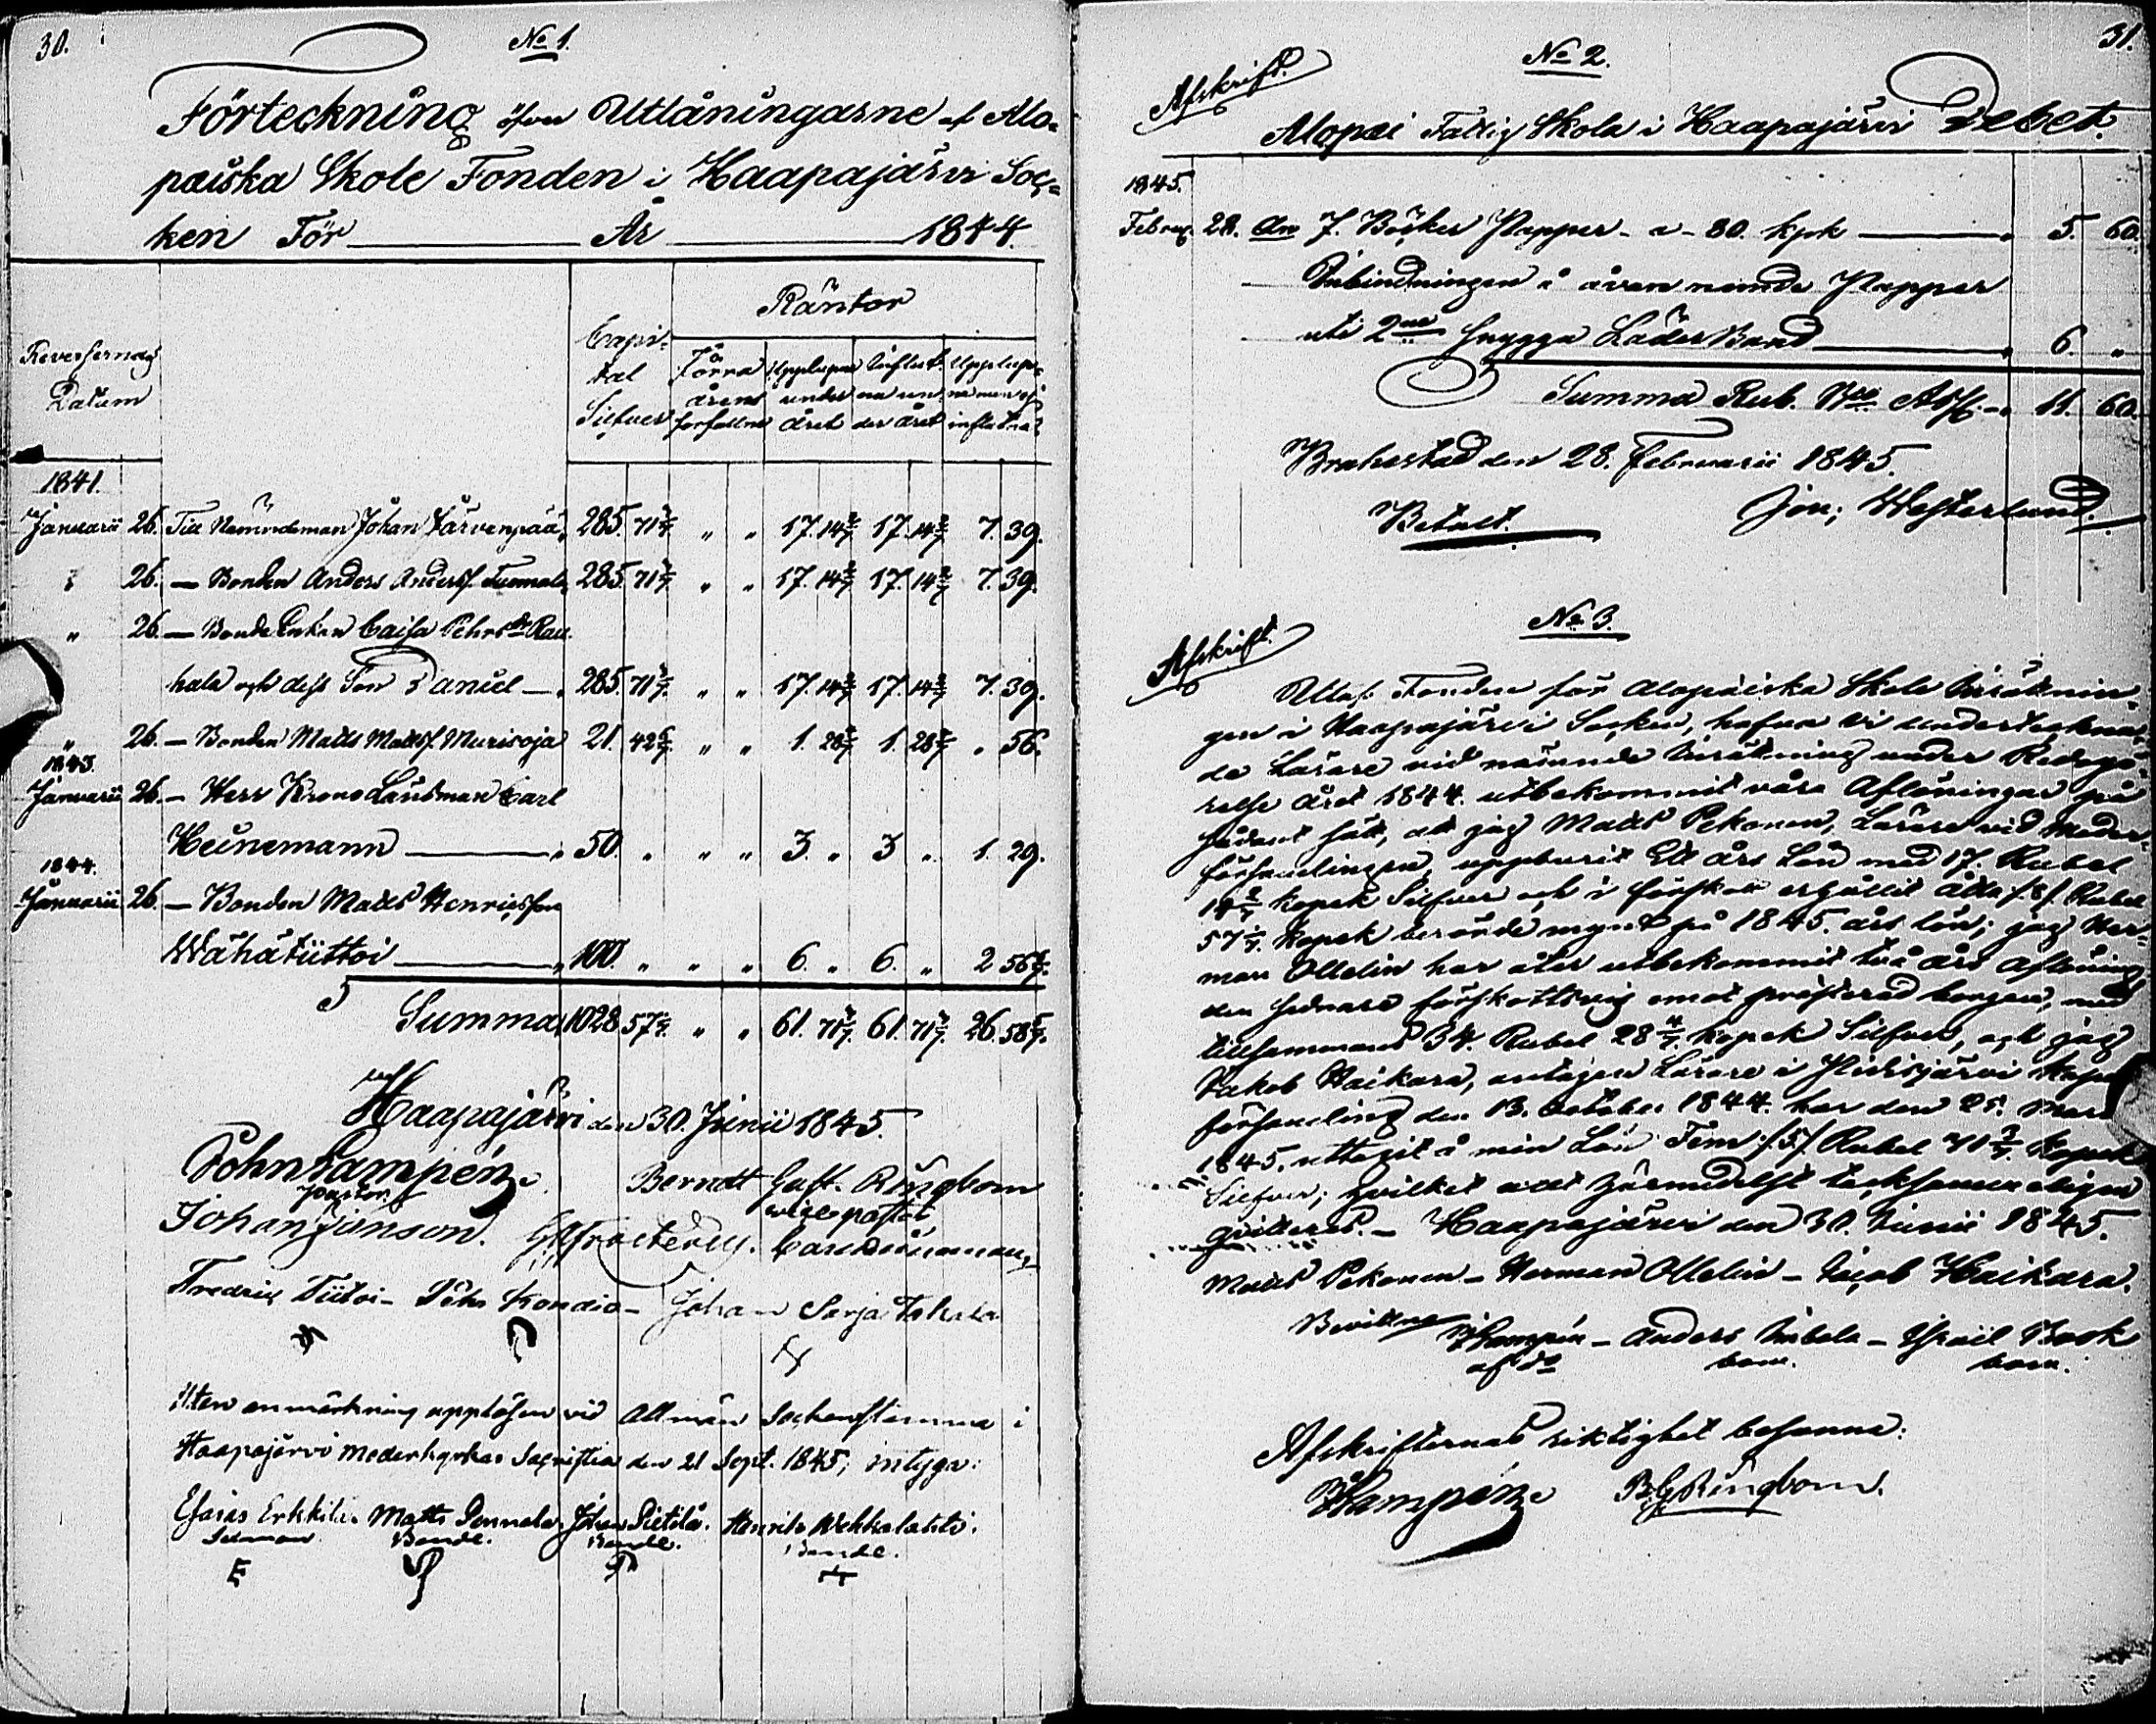 30.
No 1.
Förteckning öfver Utlåningarne af Alo-
pæiska Skole Fonden i Haapajärvi Soc-
ken För År 1844.
Reversernas Datum
Capital Silfver
Räntor
Förra årens förfallne
Upplupne under året
Influtna under året
Upplupna men ej influtna
1841.
Januarii 26. Till Nämndeman Johan Järvenpää, 285. 71 3/7 " " 17. 14 2/7 17. 14 2/7 7. 39.
" 26. — Bonden Anders Anderss. Tuomala, 285. 71 3/7 " " 17. 14 2/7 17. 14 2/7 7. 39.
" 26. — Bonde Enkan Caisa Pehrsdr Rau-
hala och dess Son Daniel — 285. 71 3/7 " " 17. 14 2/7 17. 14 2/7 7. 39.
" 26. — Bonden Matts Mattss. Murisoja 21. 42 6/7 " " 1. 28 4/7 1. 28 4/7 " 56.
1843.
Januarii 26. — Herr Krono Länsman Carl
Heinemann — 50. " " " 3. " 3 " 1. 29.
1844.
Januarii 26. — Bonden Matts Henricsson
Wähätiittoi — 100. " " " 6. " 6. " 2 56 5/7.
Summa 1028 57 1/7 " " 61. 71 3/7 61. 71 3/7 26. 58 5/7.
Haapajärvi den 30. Junii 1845.
John Lampén
Pastor
Berndt Gust. Ringbom
vice pastor
Johan Janson. Carl Heinemann
Fredric Tiitoi - Pehr Kondio - Johan Sarja
Uten anmärkning uppläsen vid Allmän Sockenstämma i
Haapajärvi Moderkyrkas Sacristia den 21 Sept. 1845; intyga:
Esaias Erkkilä. Matts Pennala. Johan Pietilä. Henrik Wehkalahti.
Bonde. Bonde. Bonde.
31.
No 2.
Afskrift.
Alopæi Fattig Skola i Haapajärvi Debet.
1845.
Februa. 28. An 7. Böcker Papper - a - 80. kpk — 5. 60.
Inbindningen å ofvan nämnde Papper
uti 2ne snygga Läder Band — 6. "
Summa Rub. Bco Ass. — 11. 60.
Brahestad den 28. Februarii 1845.
Betalt. Jon; Westerlund.
No 3.
Afskrift.
Utaf Fonden för Alopæiska Skole Inrättnin-
gen i Haapajärvi Socken, hafva vi underteckna-
de Lärare vid nämnde Inrättning under Redogö-
relse året 1844. utbekommit våra Aflöningar på
sådant sätt, att jag Matts Pekonen, Lärare vid Moder-
församlingen, uppburit Ett års Lön med 17. Rubel
14 2/7 kopek Silfver och i förskott erhållit åtta /8/ Rubel
57 1/7. kopek berörde mynt på 1845. års lön; jag Her-
man Ollelin har åter utbekommit två års aflöning
den sednare förskottsvis emot præsterad borgen, med
tillsammans 34. Rubel 28 4/7. kopek Silfver, och jag
Jakob Haikara, antagen Lärare i Pidisjärvi Kapell
församling den 13. October 1844. har den 25. Mars
1845. uttagit å min Lön Fem /5/ Rubel 71 3/7. kopek
Silfver; hvilket allt härmedelst tacksammeligen
qvitteras. - Haapajärvi den 30. Junii 1845.
Matts Pekonen - Herman Ollelin - Jacob Haikara.
Bevittna
Lampén - Anders - Israil Bask
Afskrifternas riktighet besanna:
Lampén B. G. Ringbom.